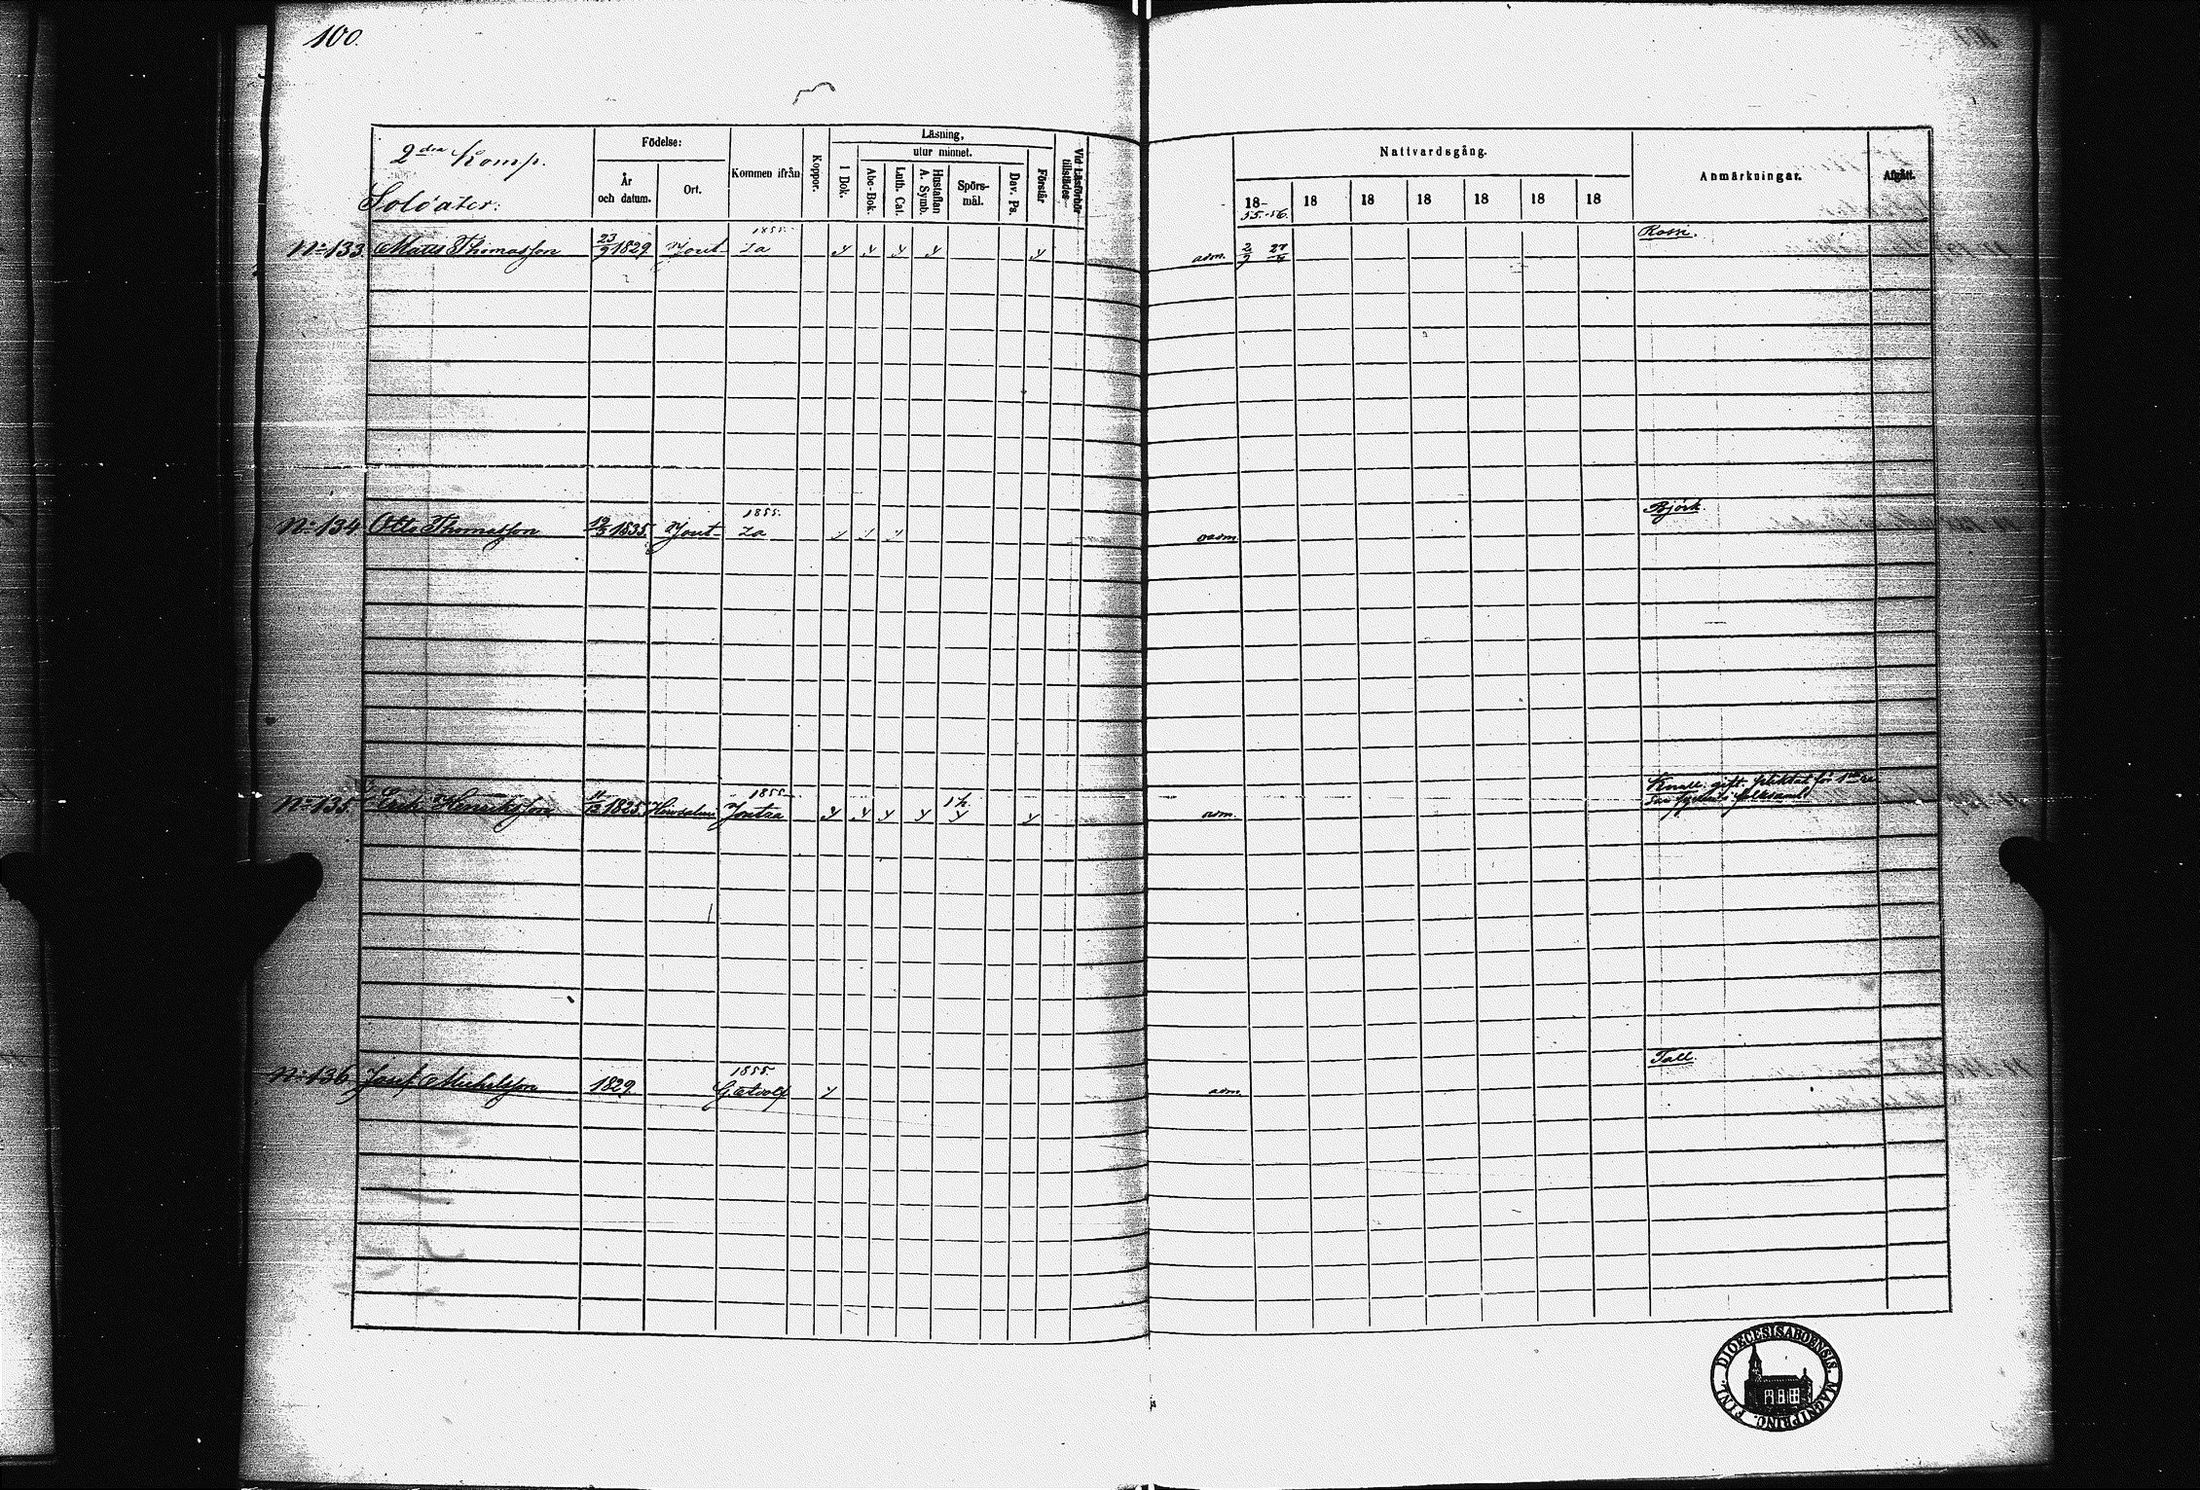 100.
2dra Komp.
Soldater:
Födelse:
År
och datum.
Ort.
Kommen ifrån
Koppor.
Läsning,
utur minnet.
I Bok.
Abc-Bok.
Luth. Cat.
Hustaflan
A. Symb.
Spörs-
mål.
Dav. Ps.
Förstår
Vid Läsförhör
tillstädes
Nattvardsgång.
18-
55.-56.
18
18
18
18
18
18
Anmärkningar.
Afgått.
No 133. Matts Thomasson 23/9 1829 1855. adm. 2/9
Rossi.
No 134. Otto Thomasson 1835. 1855. oadm.
Björk.
No 135. Erik Henriksson 1825 1855 1½ adm.
gift
No 136. Josef Michelsson 1829. 1855. adm.
Tall.
DIOECESIS ABOENSIS. MAGNI PRINC. FINL.